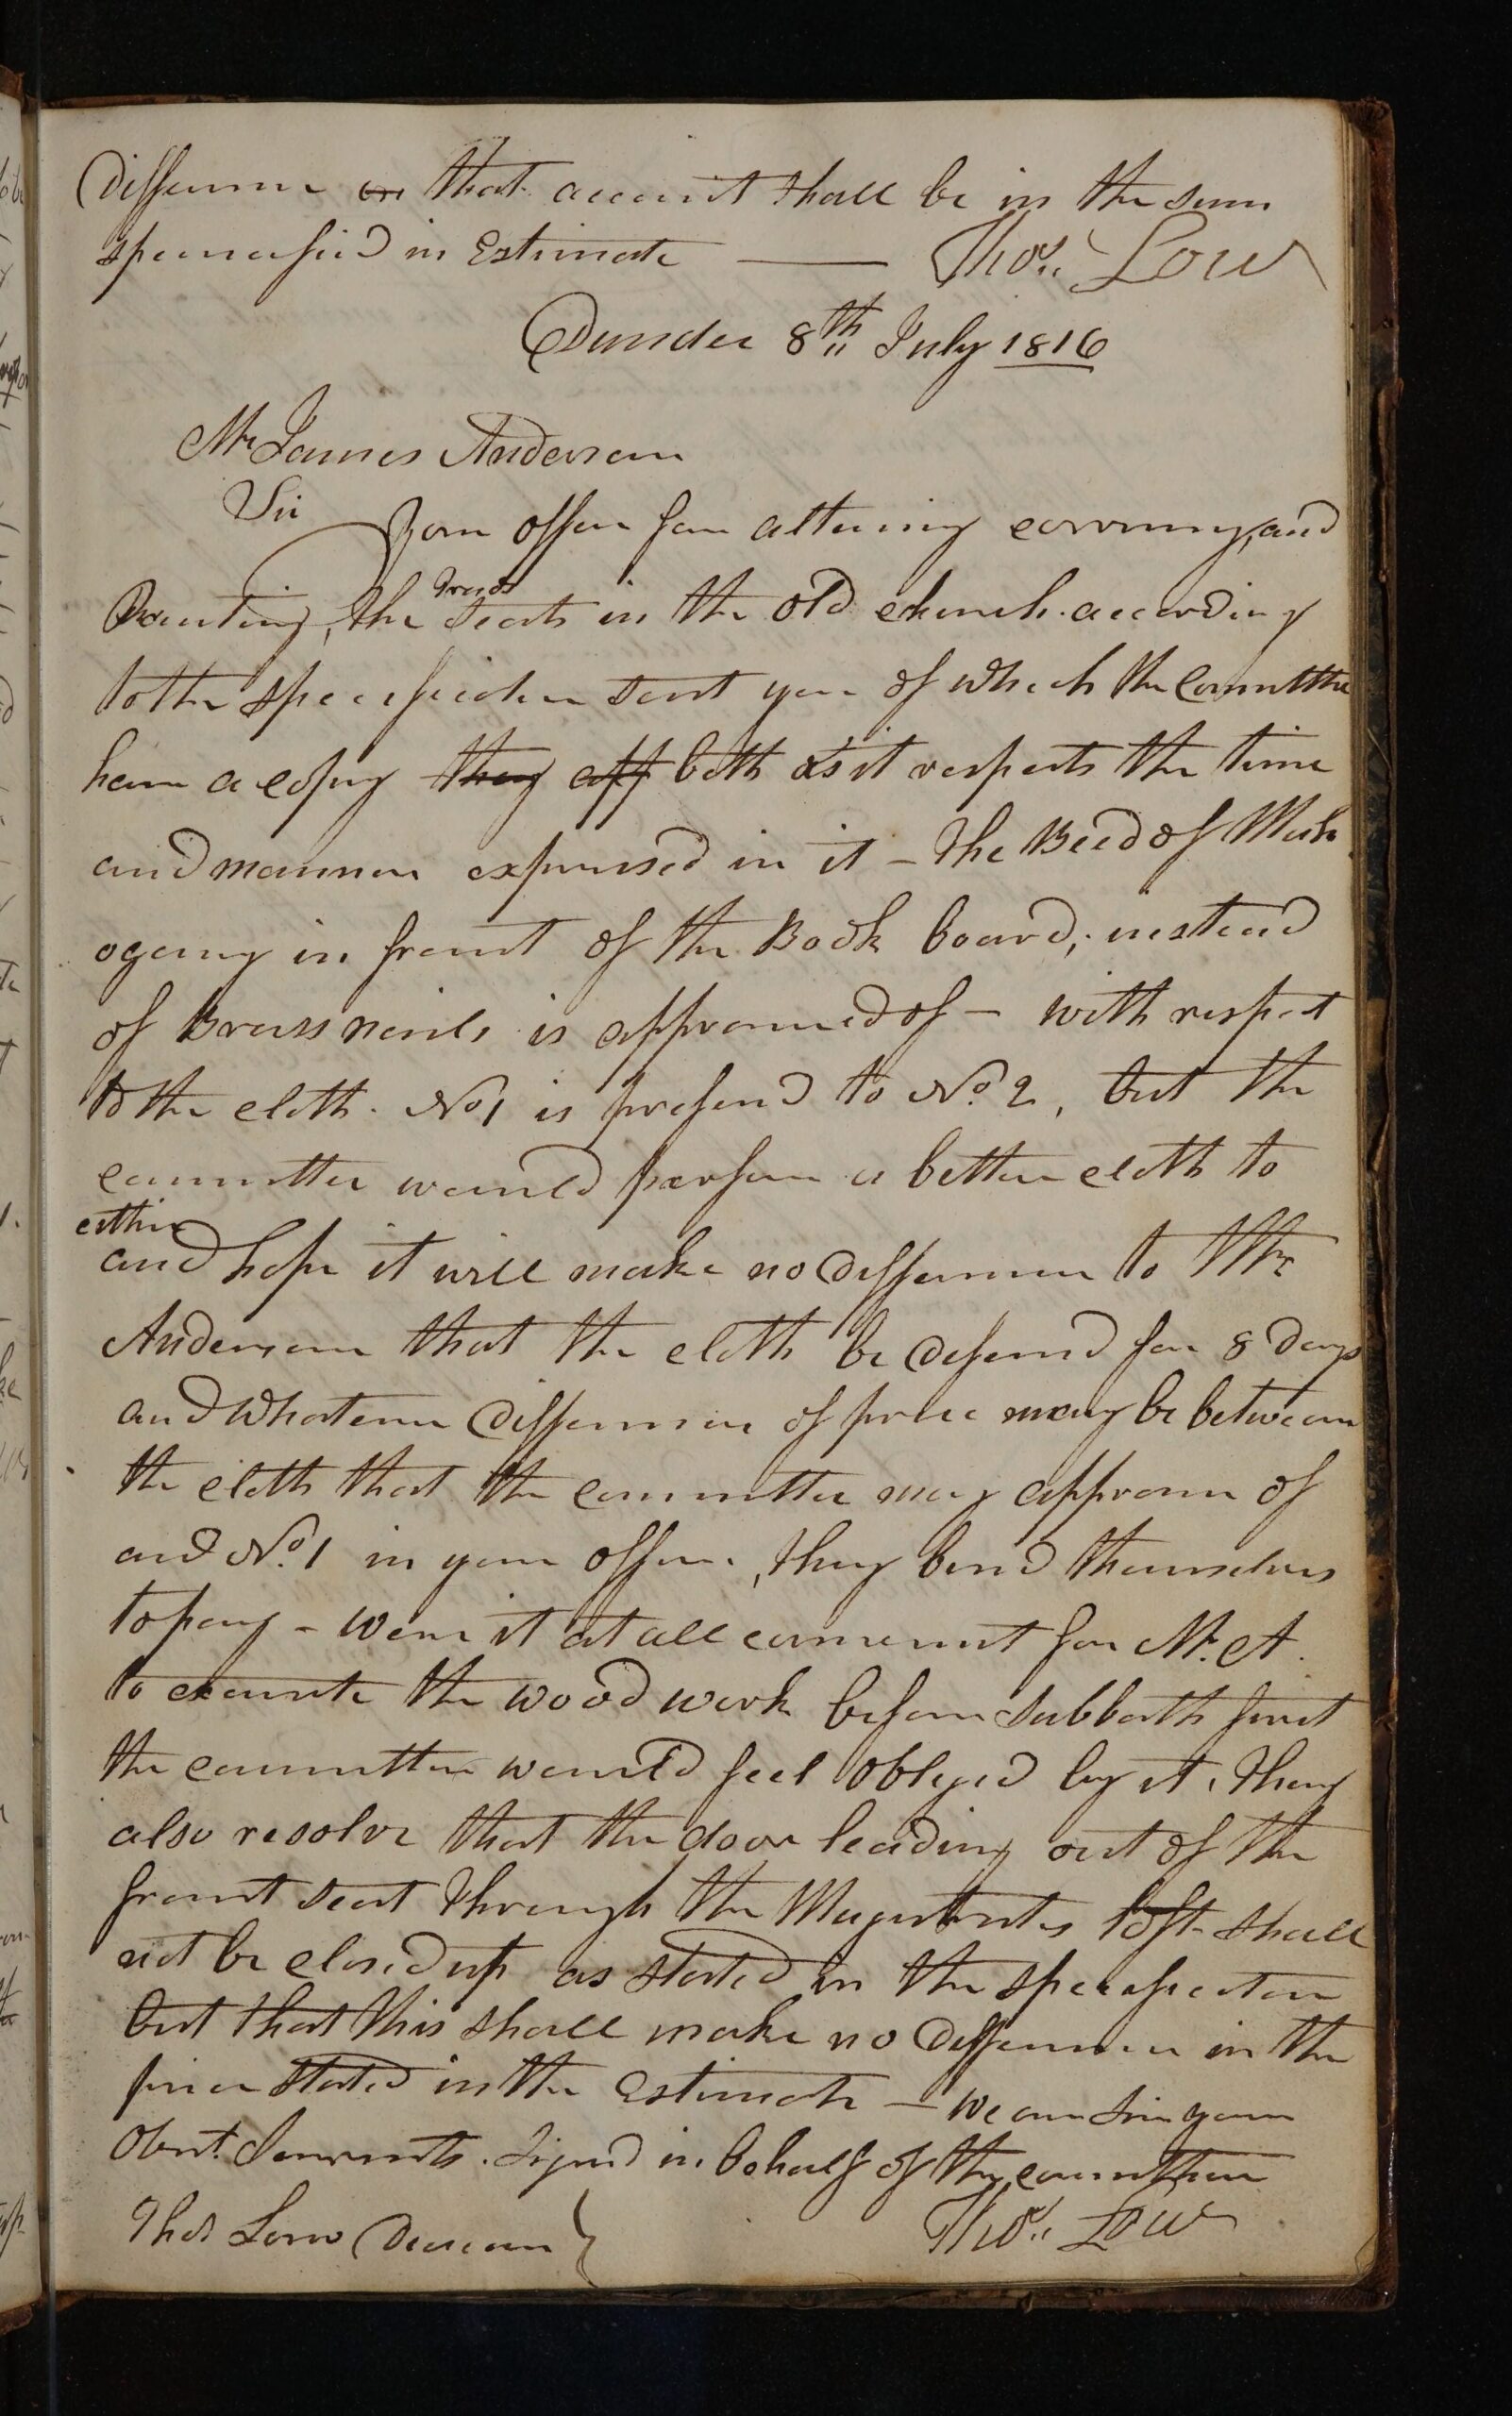 Difference on that account shall be in the sum
specersfied in Estimate — Thos. Low
Dundee 8th July 1816
Mr James Anderson
Sir Your offer for altering covering, and
Painting, the Trades seats in the old church according
to the specification sent you of which the Committee
have a copy they app both as it respects the time
and manner expressed in it – The Beed of Moh
ogany in front of the Book board, instead
of Brass nails is approved of – with respect
to the cloth. No 1 is prefered to No. 2, but the
committee would perfer a better cloth to
either
and hope it will make no Difference to Mr
Anderson that the cloth be defered for 8 days
and whatever Difference of price may be between
the cloth that the committee may approve of
and No. 1 in your offer, they bend themselves
to pay – were it at all convenient for Mr. A.
to execute the wood work before Sabbath first
the committee would feel oblyed by it, they
also resolve that the door leading out of the
front seat through the Magistrates loft shall
not be closed up as stated in the specification
but that this shall make no Difference in the
price stated in the Estimate – we are Sir your
Obnt. Servants. Signed in behalf of the committee
Thos Low Deacon } Thos. Low